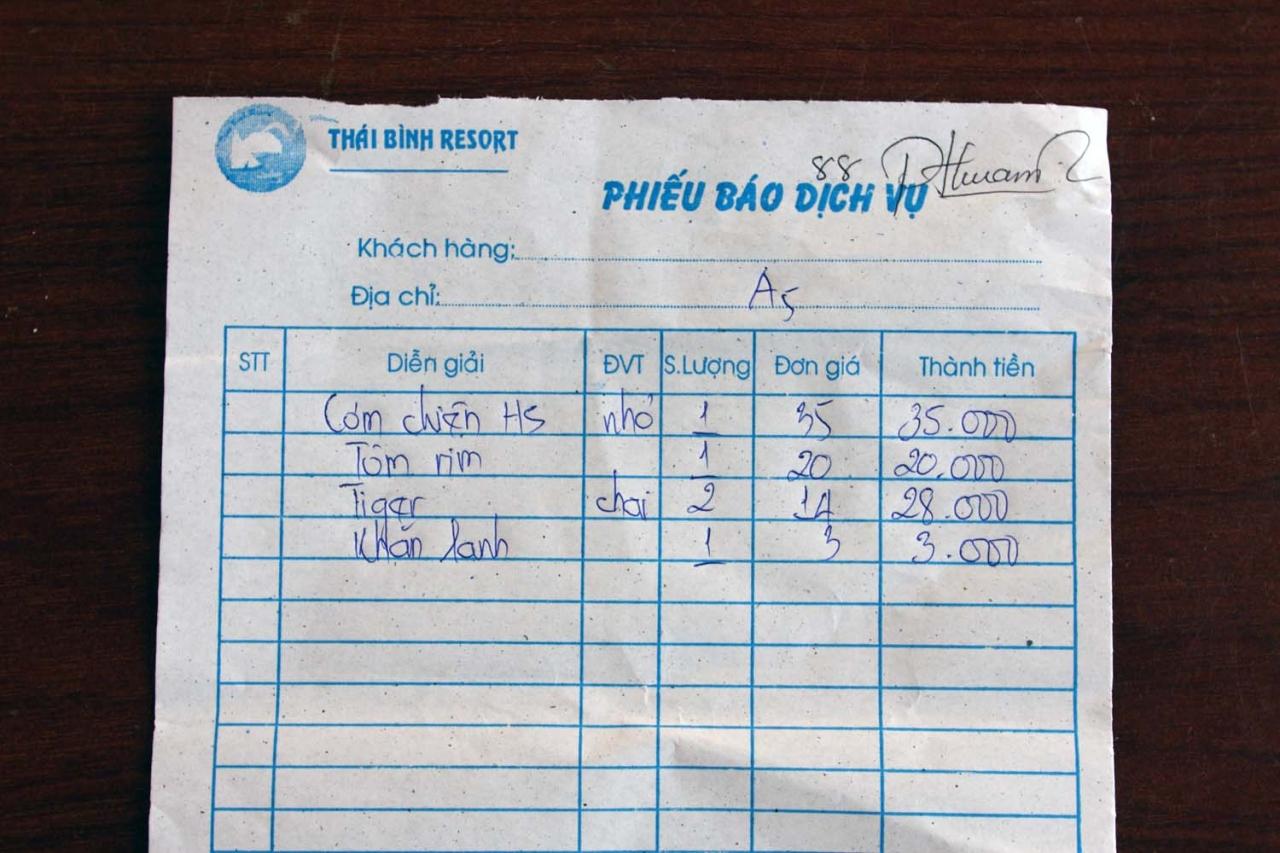 THÁI BÌNH RESORT
88
PHIẾU BÁO DỊCH VỤ
Khách hàng:
Địa chỉ: A5
STT Diễn giải ĐVT S.Lượng Đơn giá Thành tiền
Cơm chiên HS nhỏ 1 35 35.000
Tôm rim 1 20 20.000
Tiger chai 2 14 28.000
Khăn lạnh 1 3 3.000